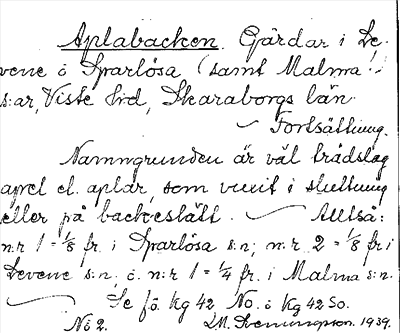 Aplabacken. Gårdar i Le-
vene o Sparlösa (samt Malma)
s:ar, Viste hd, Skaraborgs län.
Fortsättning.
Namngrunden är väl trädslag
apel el. aplar, som vuxit i sluttning
eller på backeslätt. Alltså:
n:r 1 = 1/8 fr. i Sparlösa s:n; n:r. 2 = 1/8 fr i
Levene s:n. o. n:r 1 = 1/4 fr. i Malma s:n.
Se fö. Kg 42 No. o Kg 42 So.
No 2. 1939.